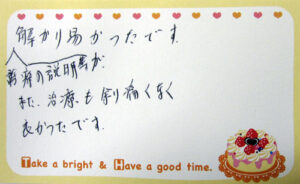 解かり易かったです
歯痛の説明書が
また、治療も余り痛くなく
良かったです。
Take a bright & Have a good time.